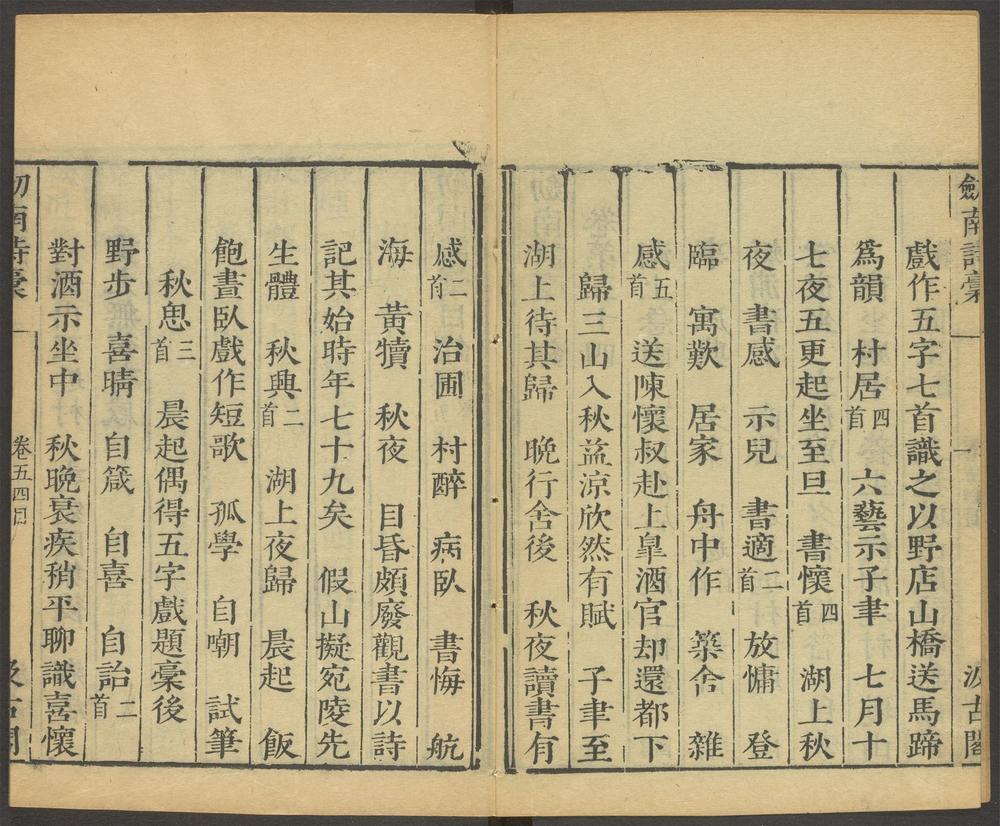 劒南詩稾
汲古閣
戲作五字七首識之以野店山橋送馬蹄
爲韻　村居四首　六藝示子聿　七月十
七夜五更起坐至旦　書懷四首　湖上秋
夜　書感　示兒　書適二首　放慵　登
臨　寓歎　居家　舟中作　築舍　雜
感五首　送陳懷叔赴上皐酒官却還都下
歸三山入秋益涼欣然有賦　子聿至
湖上待其歸　晚行舍後　秋夜讀書有
感二首　治圃　村醉　病臥　書悔　航
海　黃犢　秋夜　目昏頗廢觀書以詩
記其始時年七十九矣　假山擬宛陵先
生體　秋興二首　湖上夜歸　晨起　飯
飽晝臥戲作短歌　孤學　自嘲　試筆
秋思三首　晨起偶得五字戲題稾後
野步　喜晴　自箴　自喜　自詒二首
對酒示坐中　秋晚衰疾稍平聊識喜懷
南詩稾
卷五四目